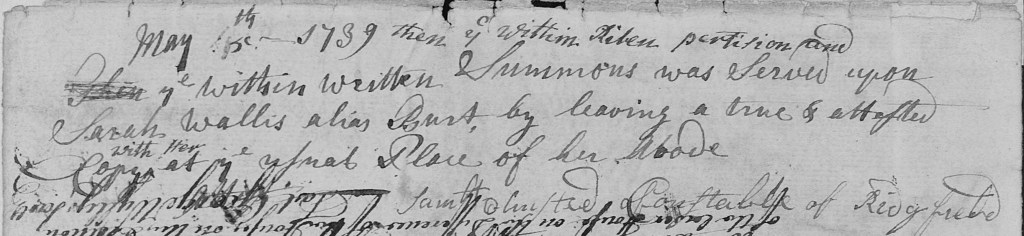 May th 1739 then ye within Riten pertision and
Then ye within written Summons was Served upon
Sarah Wallis alias Burt, by leaving a true & attested
with Her
Copy at ye usual Place of her Abode
Samll Olmsted Constable of Ridgfield